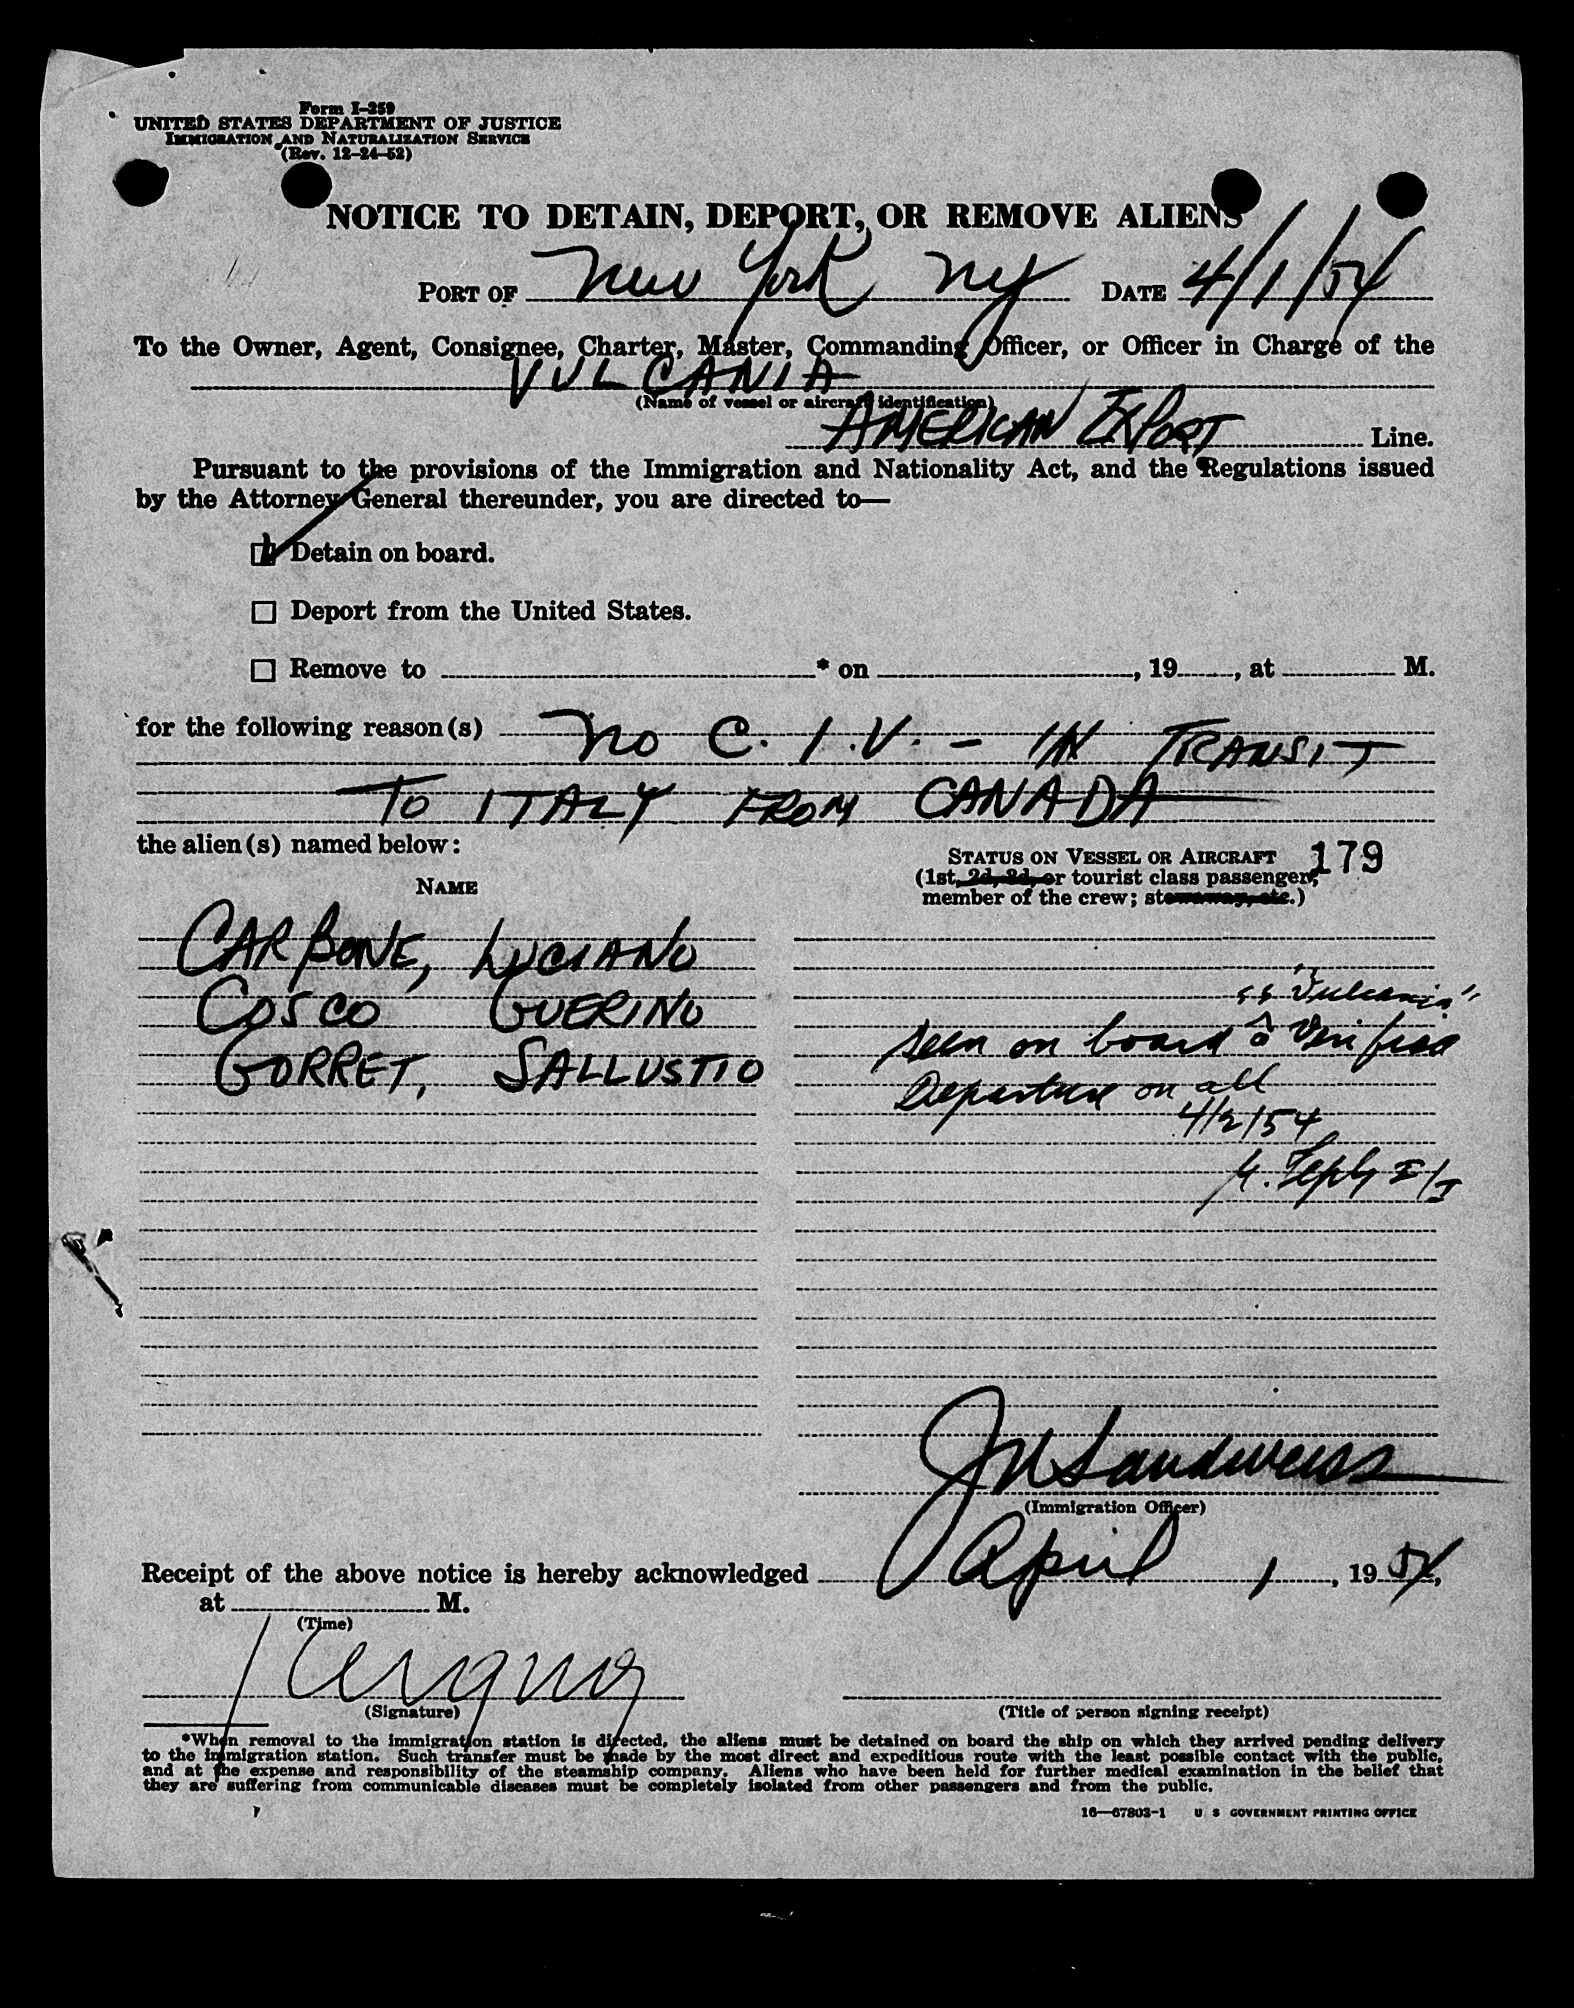 Form I-259
UNITED STATES DEPARTMENT OF JUSTICE
IMMIGRATION AND NATURALIZATION SERVICE
(Rev. 12-24-52)
NOTICE TO DETAIN, DEPORT, OR REMOVE ALIENS
PORT OF New York NY DATE 4/1/54
To the Owner, Agent, Consignee, Charter, Master, Commanding Officer, or Officer in Charge of the
VULCANIA
(Name of vessel or aircraft identification)
AMERICAN EXPORT Line.
Pursuant to the provisions of the Immigration and Nationality Act, and the Regulations issued
by the Attorney General thereunder, you are directed to—
Detain on board.
Deport from the United States.
Remove to * on , 19 , at M.
for the following reason(s) no C.I.V. - IN TRANSIT
TO ITALY FROM CANADA
the alien(s) named below:
STATUS ON VESSEL OR AIRCRAFT 179
(1st, 2d, 3d, or tourist class passenger;
member of the crew; stowaway, etc.)
NAME
CARBONE, LUCIANO
COSCO GUERINO
GORRET, SALLUSTIO
SS "Vulcania"
seen on board & Verified
Departure on all
4/2/54
I/I
JM Sandweiss
(Immigration Officer)
Receipt of the above notice is hereby acknowledged April 1, 1954,
at M.
(Time)
(Signature)
(Title of person signing receipt)
*When removal to the immigration station is directed, the aliens must be detained on board the ship on which they arrived pending delivery
to the immigration station. Such transfer must be made by the most direct and expeditious route with the least possible contact with the public,
and at the expense and responsibility of the steamship company. Aliens who have been held for further medical examination in the belief that
they are suffering from communicable diseases must be completely isolated from other passengers and from the public.
16—67803-1 U S GOVERNMENT PRINTING OFFICE